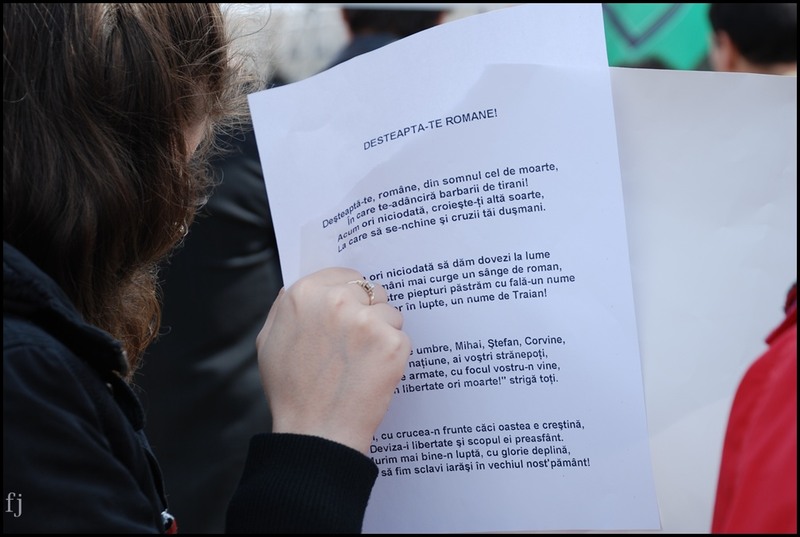 DESTEAPTA-TE ROMANE!
Deşteaptă-te, române, din somnul cel de moarte,
În care te-adânciră barbarii de tirani!
Acum ori niciodată, croieşte-ţi altă soarte,
La care să se-nchine şi cruzii tăi duşmani.
ori niciodată să dăm dovezi la lume
mâni mai curge un sânge de roman,
piepturi păstrăm cu fală-un nume
în lupte, un nume de Traian!
umbre, Mihai, Ştefan, Corvine,
naţiune, ai voştri strănepoţi,
armate, cu focul vostru-n vine,
libertate ori moarte!" strigă toţi.
cu crucea-n frunte căci oastea e creştină,
Deviza-i libertate şi scopul ei preasfânt.
Murim mai bine-n luptă, cu glorie deplină,
să fim sclavi iarăşi în vechiul nost'pământ!
fj